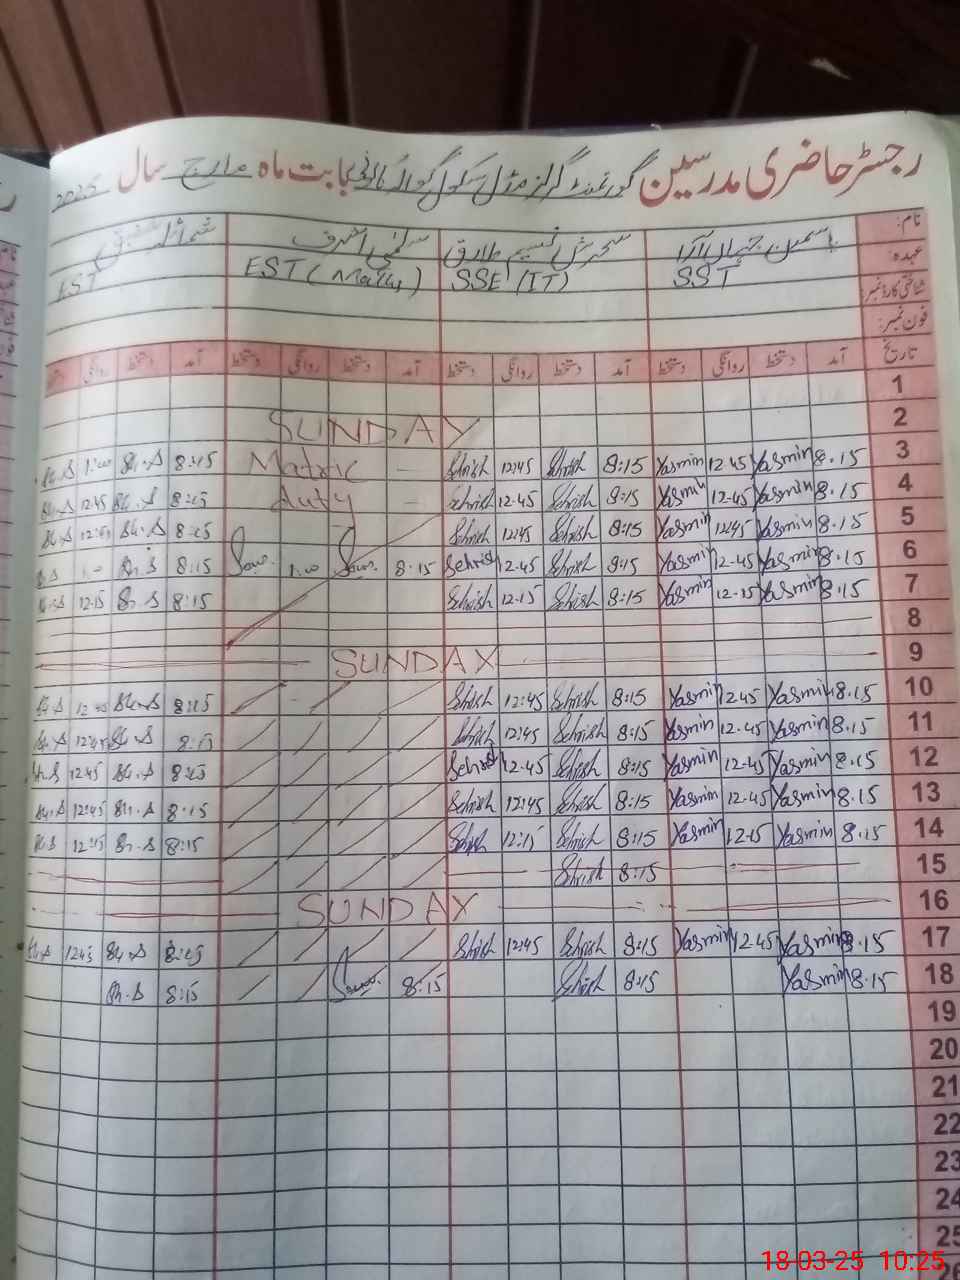 رجسٹر حاضری مدرسین گورنمنٹ گرلز مڈل سکول بابت ماہ مارچ سال 2025
نام: یاسمین جہاں آرا سحرش نسیم طارق سلمٰی اشرف شمائلہ
عہدہ: SST SSE (IT) EST (Maths) EST
شناختی کارڈ نمبر:
فون نمبر:
تاریخ آمد دستخط روانگی دستخط آمد دستخط روانگی دستخط آمد دستخط روانگی دستخط آمد دستخط روانگی دستخط
1
2 SUNDAY
3 8.15 Yasmin 12 45 Yasmin 8:15 Sehrish 12:45 Sehrish — Matric 8:15 Sh.S 1:00 Sh.S
4 8.15 Yasmin 12-45 Yasmin 8:15 Sehrish 12-45 Sehrish — duty 8:15 Sh.S 12.45 Sh.S
5 8.15 Yasmin 12.45 Yasmin 8:15 Sehrish 12:45 Sehrish 8:15 Sh.S 12:45 Sh.S
6 8.15 Yasmin 12-45 Yasmin 8:15 Sehrish 12-45 Sehrish 8:15 1:00 8:15 Sh.S 1:00 Sh.S
7 8.15 Yasmin 12-15 Yasmin 8:15 Sehrish 12-15 Sehrish 8:15 Sh.S 12-15 Sh.S
8
9 SUNDAY
10 8.15 Yasmin 12.45 Yasmin 8:15 Sehrish 12:45 Sehrish 8:15 Sh.S 12:45 Sh.S
11 8.15 Yasmin 12-45 Yasmin 8:15 Sehrish 12:45 Sehrish 8:15 Sh.S 12:45 Sh.S
12 8.15 Yasmin 12-45 Yasmin 8:15 Sehrish 12-45 Sehrish 8:15 Sh.S 12:45 Sh.S
13 8.15 Yasmin 12-45 Yasmin 8:15 Sehrish 12:45 Sehrish 8:15 Sh.S 12:45 Sh.S
14 8.15 Yasmin 12-15 Yasmin 8:15 Sehrish 12:15 Sehrish 8:15 Sh.S 12:15 Sh.S
15 8:15 Sehrish
16 SUNDAY
17 8.15 Yasmin 12-45 Yasmin 8:15 Sehrish 12:45 Sehrish 8:15 Sh.S 12:45 Sh.S
18 8.15 Yasmin 8:15 Sehrish 8:15 8:15 Sh.S
19
20
21
22
23
24
25
26
18-03-25 10:25